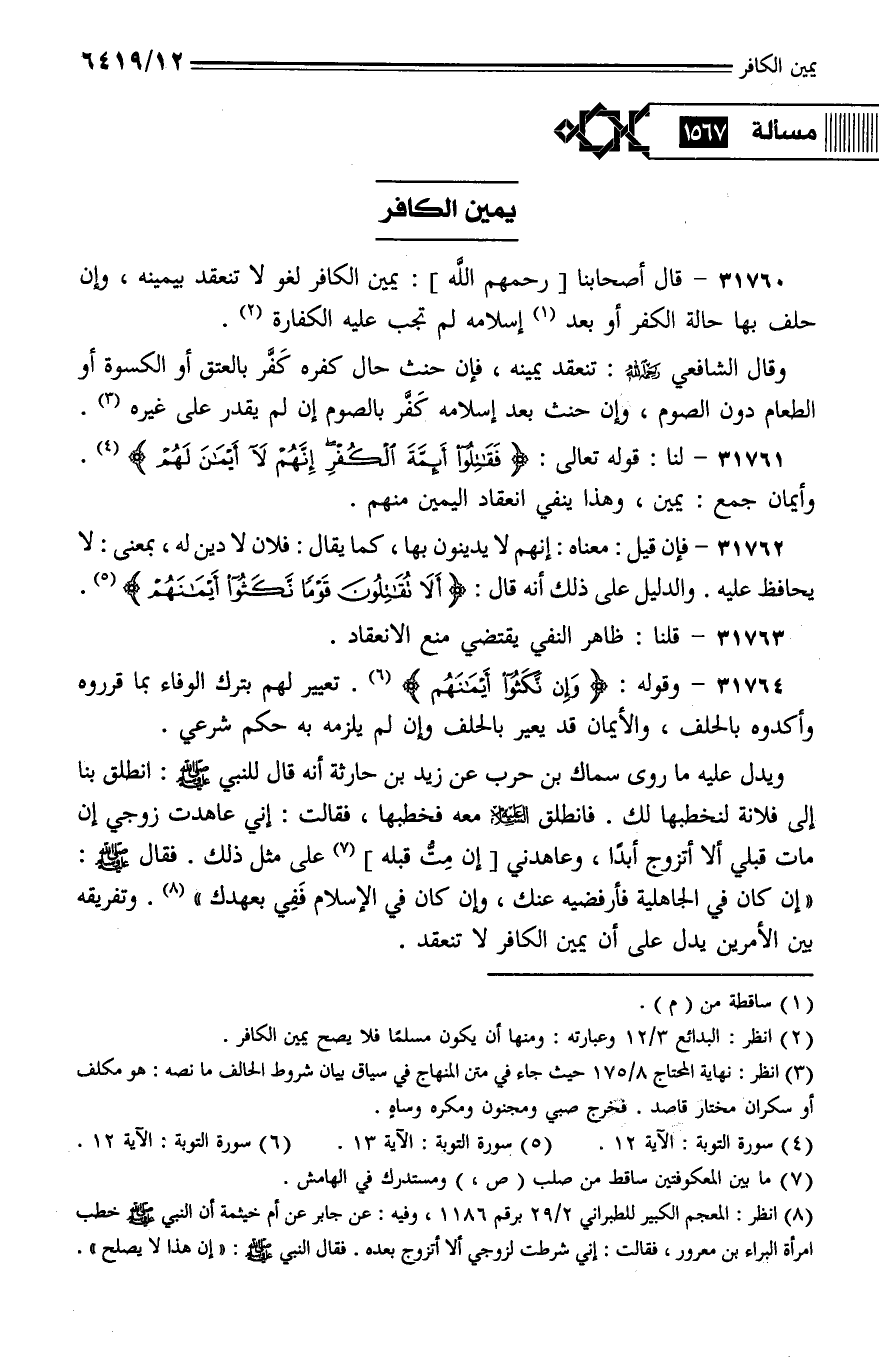 يمين الكافر ٦٤١٩/١٢
مسألة ١٥٦٧
يمين الكافر
٣١٧٦٠ – قال أصحابنا [ رحمهم اللَّه ] : يمين الكافر لغو لا تنعقد بيمينه ، وإن
حلف بها حالة الكفر أو بعد (١) إسلامه لم تجب عليه الكفارة (٢) .
وقال الشافعي رحمه الله : تنعقد يمينه ، فإن حنث حال كفره كَفَّر بالعتق أو الكسوة أو
الطعام دون الصوم ، وإن حنث بعد إسلامه كَفَّر بالصوم إن لم يقدر على غيره (٣) .
٣١٧٦١ – لنا : قوله تعالى : ﴿ فَقَٰتِلُوٓاْ أَئِمَّةَ ٱلْكُفْرِۙ إِنَّهُمْ لَآ أَيْمَٰنَ لَهُمْ ﴾ (٤) .
وأيمان جمع : يمين ، وهذا ينفي انعقاد اليمين منهم .
٣١٧٦٢ – فإن قيل : معناه : إنهم لا يدينون بها ، كما يقال : فلان لا دين له ، بمعنى : لا
يحافظ عليه . والدليل على ذلك أنه قال : ﴿ أَلَا نُقَٰتِلُونَ قَوْمًا نَّكَثُوٓاْ أَيْمَٰنَهُمْ ﴾ (٥) .
٣١٧٦٣ – قلنا : ظاهر النفي يقتضي منع الانعقاد .
٣١٧٦٤ – وقوله : ﴿ وَإِن نَّكَثُوٓاْ أَيْمَٰنَهُم ﴾ (٦) . تعيير لهم بترك الوفاء بما قرروه
وأكدوه بالحلف ، والأيمان قد يعير بالحلف وإن لم يلزمه به حكم شرعي .
ويدل عليه ما روى سماك بن حرب عن زيد بن حارثة أنه قال للنبي ﷺ : انطلق بنا
إلى فلانة لنخطبها لك . فانطلق عليه السلام معه فخطبها ، فقالت : إني عاهدت زوجي إن
مات قبلي ألا أتزوج أبدًا ، وعاهدني [ إن مِتُّ قبله ] (٧) على مثل ذلك . فقال ﷺ :
« إن كان في الجاهلية فأرفضيه عنك ، وإن كان في الإسلام فَفِي بعهدك » (٨) . وتفريقه
بين الأمرين يدل على أن يمين الكافر لا تنعقد .
(١) ساقطة من ( م ) .
(٢) انظر : البدائع ١٢/٣ وعبارته : ومنها أن يكون مسلمًا فلا يصح يمين الكافر .
(٣) انظر : نهاية المحتاج ١٧٥/٨ حيث جاء في متن المنهاج في سياق بيان شروط الحالف ما نصه : هو مكلف
أو سكران مختار قاصد . فخرج صبي ومجنون ومكره وساهٍ .
(٤) سورة التوبة : الآية ١٢ . (٥) سورة التوبة : الآية ١٣ . (٦) سورة التوبة : الآية ١٢ .
(٧) ما بين المعكوفتين ساقط من صلب ( ص ، ) ومستدرك في الهامش .
(٨) انظر : المعجم الكبير للطبراني ٢٩/٢ برقم ١١٨٦ ، وفيه : عن جابر عن أم خيثمة أن النبي ﷺ خطب
امرأة البراء بن معرور ، فقالت : إني شرطت لزوجي ألا أتزوج بعده . فقال النبي ﷺ : « إن هذا لا يصلح » .